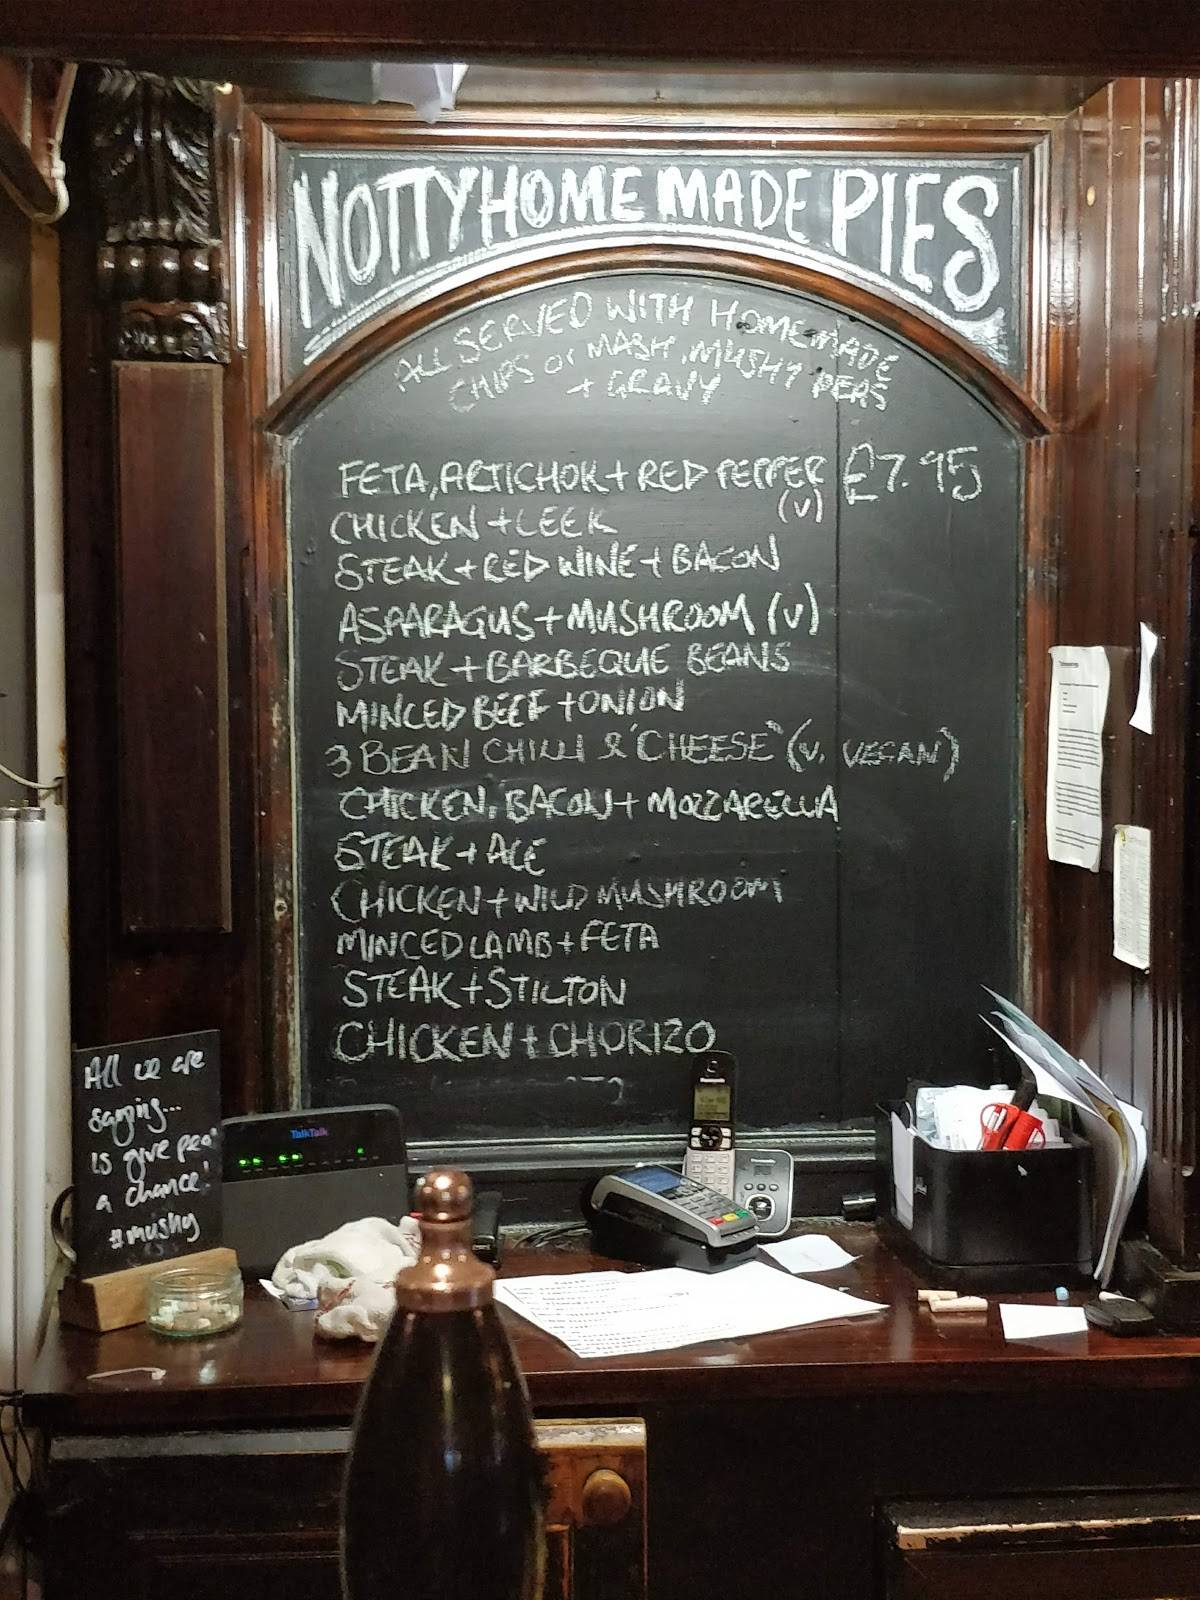 NOTTY HOME MADE PIES
ALL SERVED WITH HOMEMADE
CHIPS or MASH, MUSHY PEAS
+ GRAVY
FETA, ARTICHOK + RED PEPPER £7.95
(V)
CHICKEN + LEEK
STEAK + RED WINE + BACON
ASPARAGUS + MUSHROOM (V)
STEAK + BARBEQUE BEANS
MINCED BEEF + ONION
3 BEAN CHILLI & "CHEESE" (V, VEGAN)
CHICKEN, BACON + MOZZARELLA
STEAK + ALE
CHICKEN + WILD MUSHROOM
MINCED LAMB + FETA
STEAK + STILTON
CHICKEN + CHORIZO
All we are
saying...
is give peas
a chance!
#mushy
TalkTalk
Panasonic